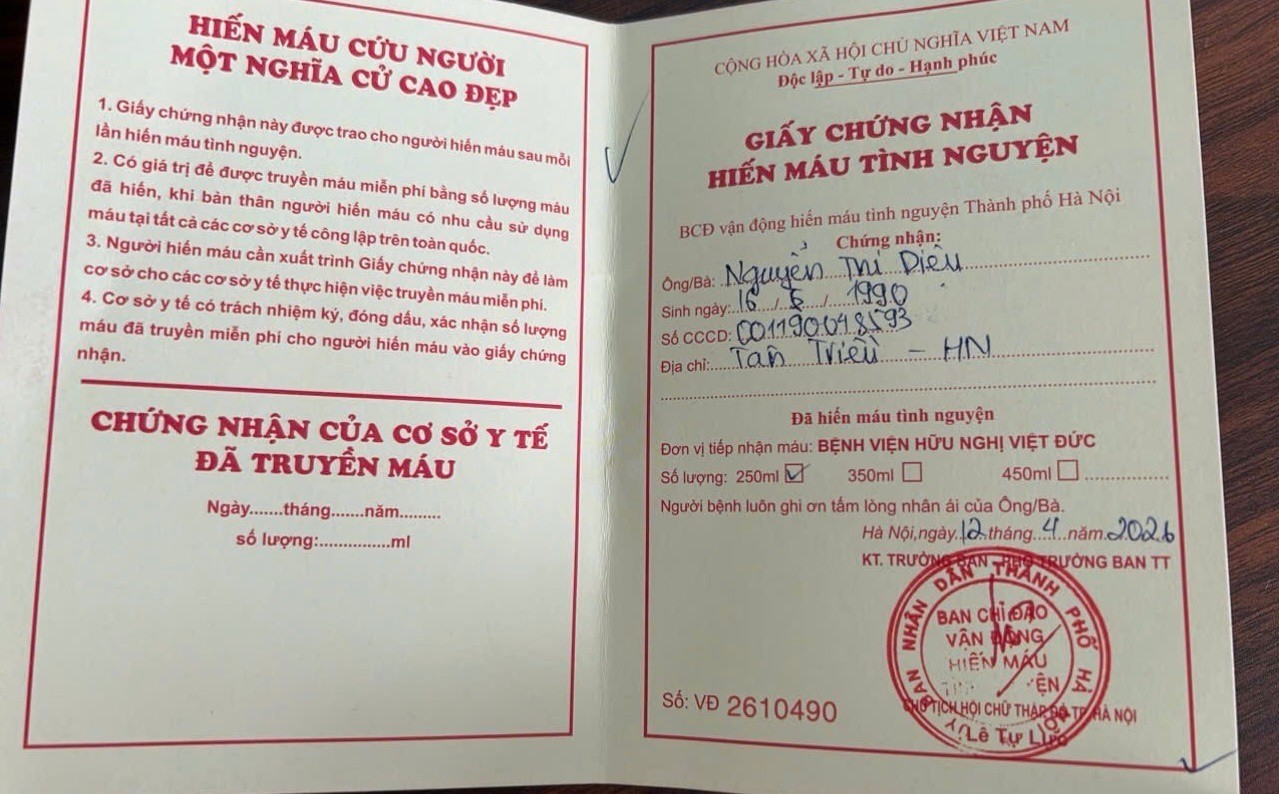 HIẾN MÁU CỨU NGƯỜI
MỘT NGHĨA CỬ CAO ĐẸP
1. Giấy chứng nhận này được trao cho người hiến máu sau mỗi
lần hiến máu tình nguyện.
2. Có giá trị để được truyền máu miễn phí bằng số lượng máu
đã hiến, khi bản thân người hiến máu có nhu cầu sử dụng
máu tại tất cả các cơ sở y tế công lập trên toàn quốc.
3. Người hiến máu cần xuất trình Giấy chứng nhận này để làm
cơ sở cho các cơ sở y tế thực hiện việc truyền máu miễn phí.
4. Cơ sở y tế có trách nhiệm ký, đóng dấu, xác nhận số lượng
máu đã truyền miễn phí cho người hiến máu vào giấy chứng
nhận.
CHỨNG NHẬN CỦA CƠ SỞ Y TẾ
ĐÃ TRUYỀN MÁU
Ngày.......tháng.......năm.........
số lượng:................ml
CỘNG HÒA XÃ HỘI CHỦ NGHĨA VIỆT NAM
Độc lập - Tự do - Hạnh phúc
GIẤY CHỨNG NHẬN
HIẾN MÁU TÌNH NGUYỆN
BCĐ vận động hiến máu tình nguyện Thành phố Hà Nội
Chứng nhận:
Ông/Bà: Nguyễn Thị Diệu
Sinh ngày: 16 / 5 / 1990
Số CCCD: 001190048593
Địa chỉ: Tân Triều - HN
Đã hiến máu tình nguyện
Đơn vị tiếp nhận máu: BỆNH VIỆN HỮU NGHỊ VIỆT ĐỨC
Số lượng: 250ml ☑ 350ml ☐ 450ml ☐
Người bệnh luôn ghi ơn tấm lòng nhân ái của Ông/Bà.
Hà Nội, ngày 12 tháng 4 năm 2026
KT. TRƯỞNG BAN - PHÓ TRƯỞNG BAN TT
ỦY BAN NHÂN DÂN THÀNH PHỐ HÀ NỘI
BAN CHỈ ĐẠO
VẬN ĐỘNG
HIẾN MÁU
CHỦ TỊCH HỘI CHỮ THẬP ĐỎ TP HÀ NỘI
Lê Tự
Số: VĐ 2610490